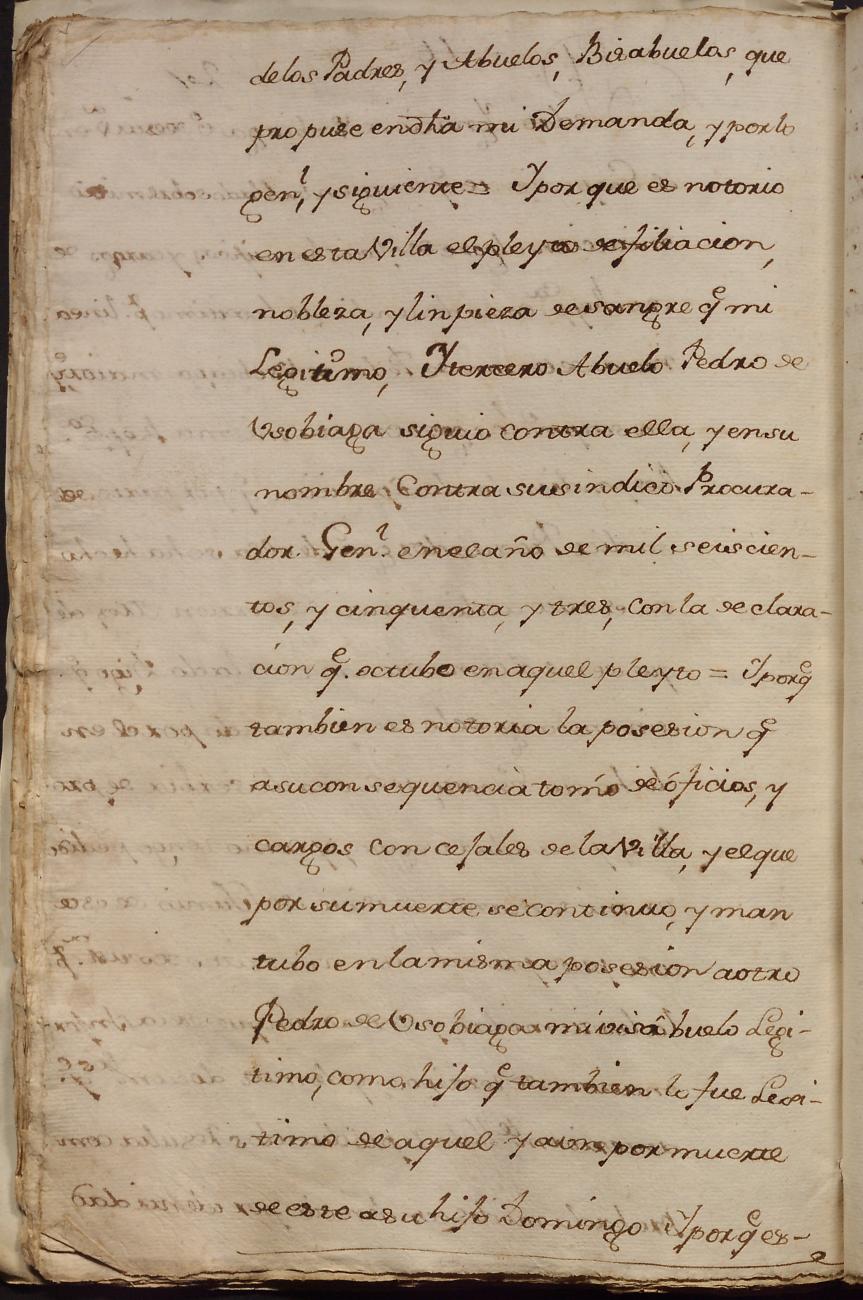 delos Padres, y Abuelos, Bisabuelos, que
propuse en dha mi Demanda, y por lo
genl, y siguiente = Y por que es notorio
en esta Villa el pleyto de filiacion,
nobleza, y linpieza de sangre q̃ mi
Legitimo, Y tercero Abuelo Pedro de
Vsobiaga siguio contra ella, y en su
nombre Contra su sindico Procura-
dor Genl. en el año de mil seiscien-
tos, y cinquenta, y tres, con la declara-
cion q̃. octubo en aquel pleyto = Y porq̃
tambien es notoria la posesion q̃
a su consequencia tomó de oficios, y
cargos concejales de la Villa, y el que
por su muerte se continuo, y man
tubo en la misma posesion a otro
Pedro de Vsobiaga mi visabuelo Legi-
timo, como hijo q̃ tambien lo fue Legi-
timo de aquel y aun por muerte
de este a su hijo Domingo Y porq̃ es-